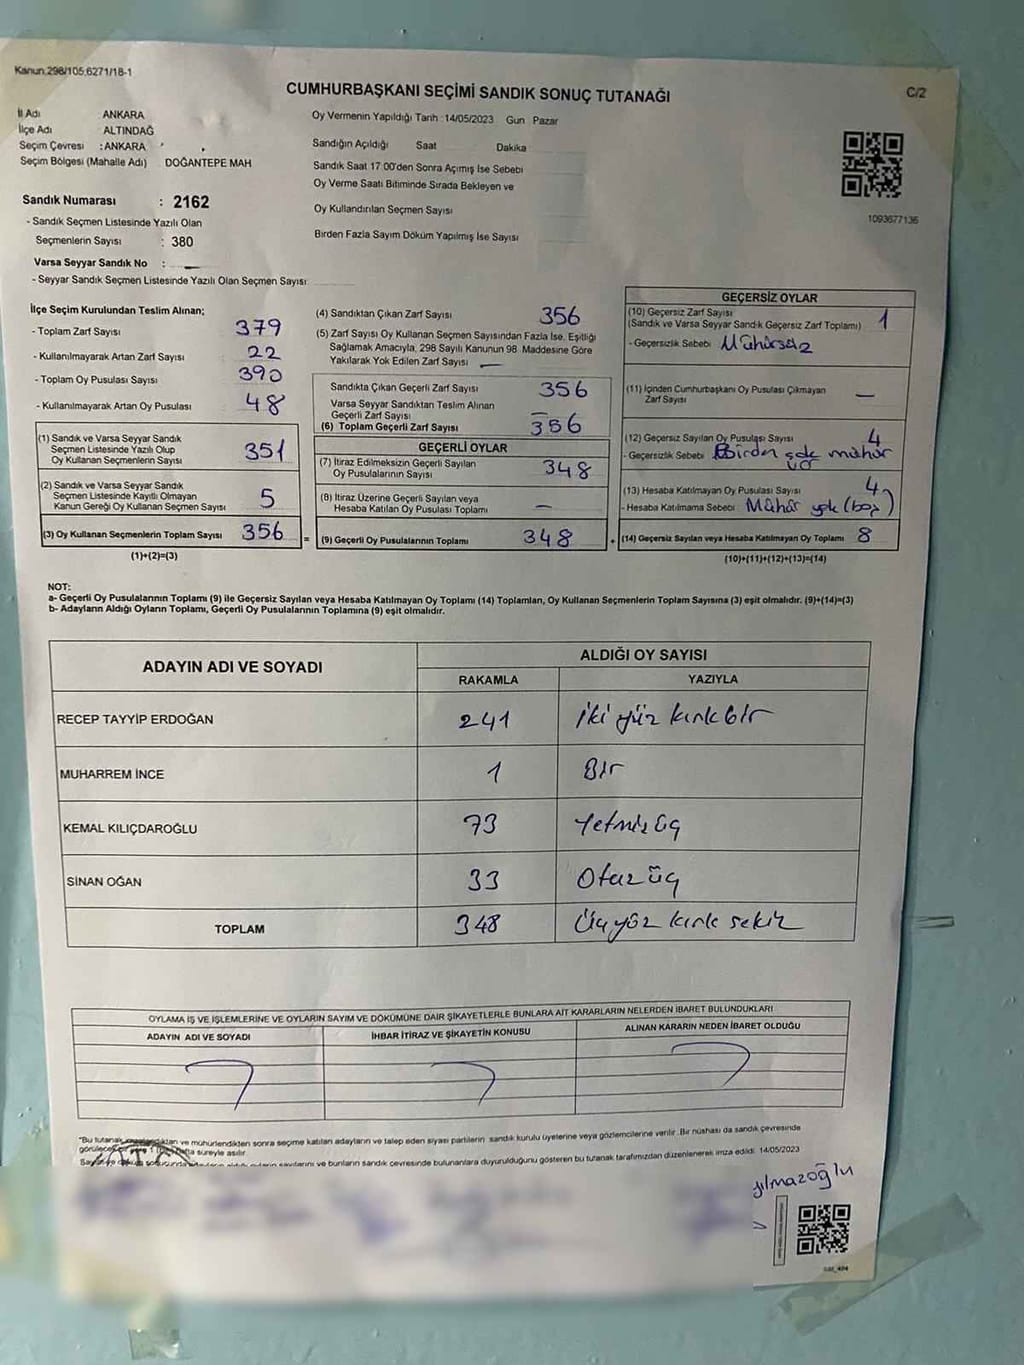 Kanun,298/105,6271/18-1
CUMHURBAŞKANI SEÇİMİ SANDIK SONUÇ TUTANAĞI
C/2
İl Adı ANKARA
İlçe Adı : ALTINDAĞ
Seçim Çevresi : ANKARA
Seçim Bölgesi (Mahalle Adı) DOĞANTEPE MAH
Sandık Numarası : 2162
- Sandık Seçmen Listesinde Yazılı Olan
Seçmenlerin Sayısı : 380
Varsa Seyyar Sandık No : -
- Seyyar Sandık Seçmen Listesinde Yazılı Olan Seçmen Sayısı:
Oy Vermenin Yapıldığı Tarih :14/05/2023 Gun Pazar
Sandığın Açıldığı Saat Dakika
Sandık Saat 17:00'den Sonra Açımış İse Sebebi
Oy Verme Saati Bitiminde Sırada Bekleyen ve
Oy Kullandırılan Seçmen Sayısı
Birden Fazla Sayım Döküm Yapılmış İse Sayısı
1093677136
İlçe Seçim Kurulundan Teslim Alınan;
- Toplam Zarf Sayısı 379
- Kullanılmayarak Artan Zarf Sayısı 22
- Toplam Oy Pusulası Sayısı 390
- Kullanılmayarak Artan Oy Pusulası 48
(1) Sandık ve Varsa Seyyar Sandık
Seçmen Listesinde Yazılı Olup
Oy Kullanan Seçmenlerin Sayısı 351
(2) Sandık ve Varsa Seyyar Sandık
Seçmen Listesinde Kayıtlı Olmayan
Kanun Gereği Oy Kullanan Seçmen Sayısı 5
(3) Oy Kullanan Seçmenlerin Toplam Sayısı 356 =
(1)+(2)=(3)
(4) Sandıktan Çıkan Zarf Sayısı 356
(5) Zarf Sayısı Oy Kullanan Seçmen Sayısından Fazla İse, Eşitliği
Sağlamak Amacıyla, 298 Sayılı Kanunun 98. Maddesine Göre
Yakılarak Yok Edilen Zarf Sayısı —
Sandıkta Çıkan Geçerli Zarf Sayısı 356
Varsa Seyyar Sandıktan Teslim Alınan
Geçerli Zarf Sayısı —
(6) Toplam Geçerli Zarf Sayısı 356
GEÇERLİ OYLAR
(7) İtiraz Edilmeksizin Geçerli Sayılan
Oy Pusulalarının Sayısı 348
(8) İtiraz Üzerine Geçerli Sayılan veya
Hesaba Katılan Oy Pusulası Toplamı —
(9) Geçerli Oy Pusulalarının Toplamı 348 +
GEÇERSİZ OYLAR
(10) Geçersiz Zarf Sayısı 1
(Sandık ve Varsa Seyyar Sandık Geçersiz Zarf Toplamı)
- Geçersizlik Sebebi Mühürsüz
(11) İçinden Cumhurbaşkanı Oy Pusulası Çıkmayan
Zarf Sayısı —
(12) Geçersiz Sayılan Oy Pusulası Sayısı 4
- Geçersizlik Sebebi Birden çok mühür
var
(13) Hesaba Katılmayan Oy Pusulası Sayısı 4
- Hesaba Katılmama Sebebi Mühür yok (boş)
(14) Geçersiz Sayılan veya Hesaba Katılmayan Oy Toplamı 8
(10)+(11)+(12)+(13)=(14)
NOT:
a- Geçerli Oy Pusulalarının Toplamı (9) ile Geçersiz Sayılan veya Hesaba Katılmayan Oy Toplamı (14) Toplamları, Oy Kullanan Seçmenlerin Toplam Sayısına (3) eşit olmalıdır. (9)+(14)=(3)
b- Adayların Aldığı Oyların Toplamı, Geçerli Oy Pusulalarının Toplamına (9) eşit olmalıdır.
ADAYIN ADI VE SOYADI ALDIĞI OY SAYISI
RAKAMLA YAZIYLA
RECEP TAYYİP ERDOĞAN 241 iki yüz kırk bir
MUHARREM İNCE 1 Bir
KEMAL KILIÇDAROĞLU 73 Yetmiş üç
SİNAN OĞAN 33 Otuz üç
TOPLAM 348 Üçyüz kırk sekiz
OYLAMA İŞ VE İŞLEMLERİNE VE OYLARIN SAYIM VE DÖKÜMÜNE DAİR ŞİKAYETLERLE BUNLARA AİT KARARLARIN NELERDEN İBARET BULUNDUKLARI
ADAYIN ADI VE SOYADI İHBAR İTİRAZ VE ŞİKAYETİN KONUSU ALINAN KARARIN NEDEN İBARET OLDUĞU
"Bu tutanak ve mühürlendikten sonra seçime katılan adayların ve talep eden siyasi partilerin sandık kurulu üyelerine veya gözlemcilerine verilir. Bir nüshası da sandık çevresinde
süreyle asılır.
ve bunların sandık çevresinde bulunanlara duyurulduğunu gösteren bu tutanak tarafımızdan düzenlenerek imza edildi. 14/05/2023
yılmazoğlu